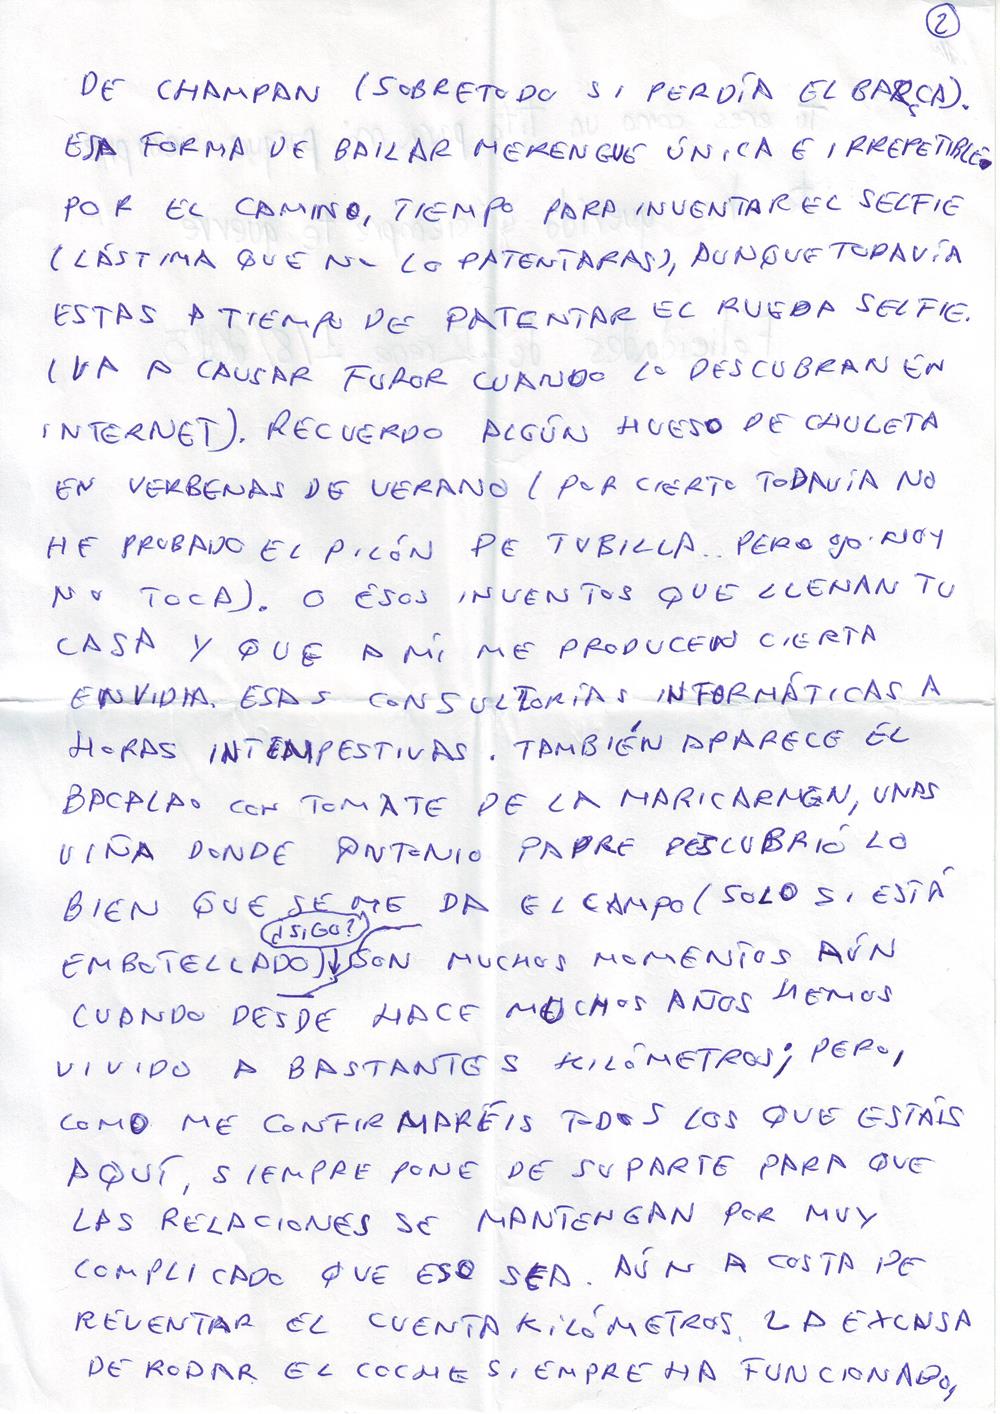 2
DE CHAMPAN (SOBRETODO SI PERDÍA EL BARÇA).
ESA FORMA DE BAILAR MERENGUE ÚNICA E IRREPETIBLE.
POR EL CAMINO, TIEMPO PARA INVENTAR EL SELFIE
(LÁSTIMA QUE NO LO PATENTARAS), AUNQUE TODAVÍA
ESTAS A TIEMPO DE PATENTAR EL RUEDA SELFIE.
(VA A CAUSAR FUROR CUANDO LO DESCUBRAN EN
INTERNET). RECUERDO ALGÚN HUESO DE CHULETA
EN VERBENAS DE VERANO (POR CIERTO TODAVÍA NO
HE PROBADO EL PILÓN DE TUBILLA.. PERO HOY
NO TOCA). O ÉSOS INVENTOS QUE LLENAN TU
CASA Y QUE A MÍ ME PRODUCEN CIERTA
ENVIDIA. ESAS CONSULTORÍAS INFORMÁTICAS A
HORAS INTEMPESTIVAS. TAMBIÉN APARECE EL
BACALAO CON TOMATE DE LA MARICARMEN, UNAS
VIÑA DONDE ANTONIO PADRE DESCUBRIÓ LO
BIEN QUE SE ME DA EL CAMPO (SOLO SI ESTÁ
¿SIGO?
EMBOTELLADO) SON MUCHOS MOMENTOS AÚN
CUANDO DESDE HACE MUCHOS AÑOS HEMOS
VIVIDO A BASTANTES KILÓMETROS; PERO,
COMO ME CONFIRMARÉIS TODOS LOS QUE ESTAÍS
AQUÍ, SIEMPRE PONE DE SU PARTE PARA QUE
LAS RELACIONES SE MANTENGAN POR MUY
COMPLICADO QUE ESO SEA. AÚN A COSTA DE
REVENTAR EL CUENTA KILÓMETROS. LA EXCUSA
DE RODAR EL COCHE SIEMPRE HA FUNCIONADO,